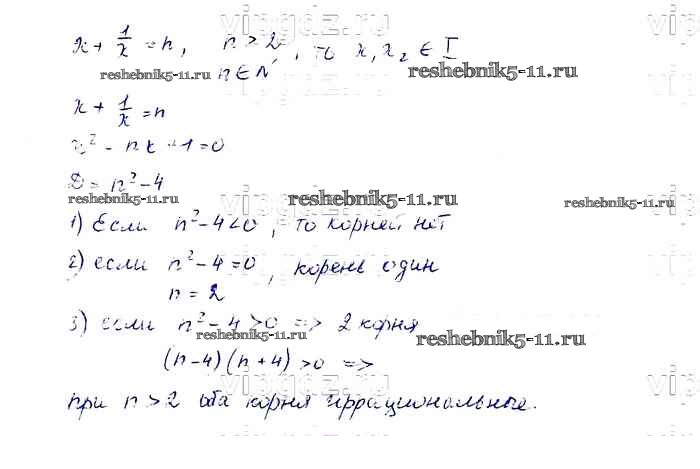 x + 1/x = n, n > 2, n ∈ N, то x₁x₂ ∈ I
reshebnik5-11.ru reshebnik5-11.ru
x + 1/x = n
x² - nx + 1 = 0
D = n² - 4
reshebnik5-11.ru reshebnik5-11.ru reshebnik5-11.ru
1) Если n² - 4 < 0, то корней нет
2) если n² - 4 = 0, корень один
n = 2
3) если n² - 4 > 0 => 2 корня
reshebnik5-11.ru reshebnik5-11.ru
(n - 4)(n + 4) > 0 =>
при n > 2 оба корня иррациональные.
vipgdz.ru